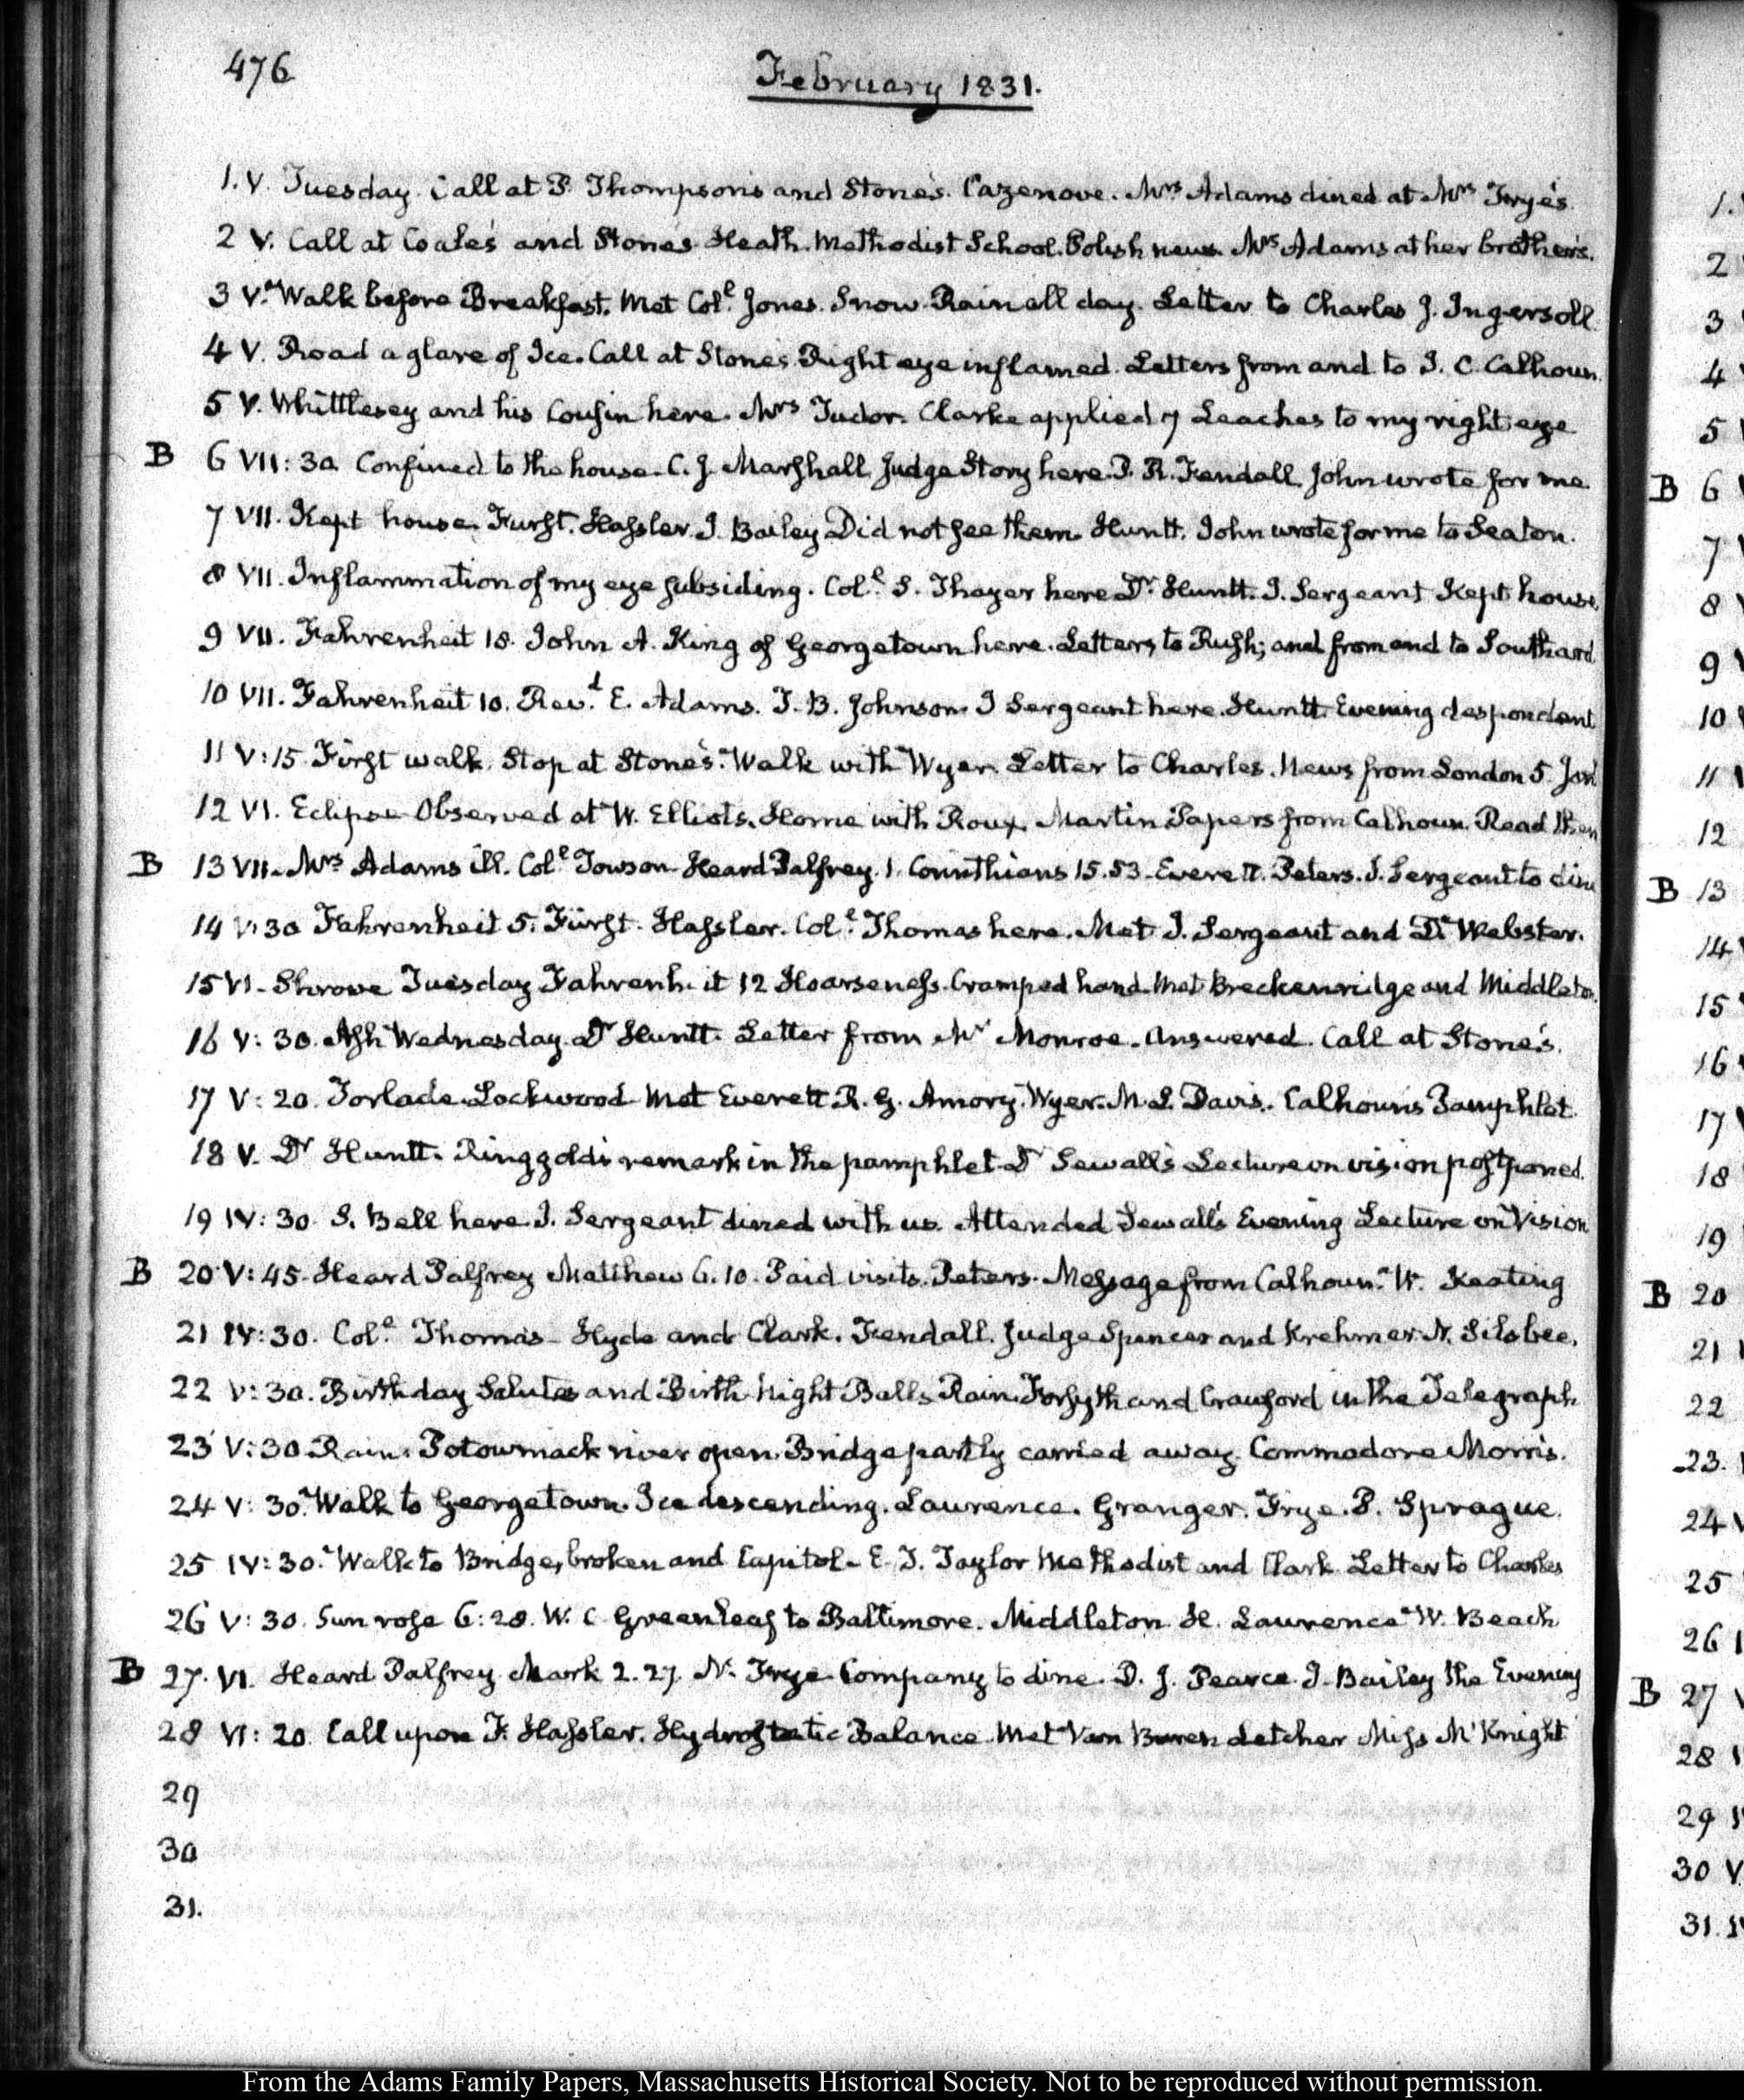 476
February 1831.
1. V. Tuesday. Call at P. Thompson's and Stone's. Cazenove. Mrs Adams dined at Mrs Frye's.
2 V. Call at Coale's and Stone's. Heath. Methodist School. Polish news. Mrs Adams at her brother's.
3 V. Walk before Breakfast. Met Col.l Jones. Snow. Rain all day. Letter to Charles J. Ingersoll.
4 V. Road a glare of Ice. Call at Stone's. Right eye inflamed. Letters from and to J. C. Calhoun.
5 V. Whittlesey and his Cousin here. Mrs Tudor. Clarke applied 7 Leaches to my right eye
B 6 VII: 30. Confined to the house. C. J. Marshall, Judge Story here. J. R. Kendall. John wrote for me.
7 VII. Kept house. Furst. Hassler. J. Bailey Did not see them. Huntt. John wrote for me to Seaton.
8 VII. Inflammation of my eye subsiding. Col.l S. Thayer here Dr Huntt. J. Sergeant Kept house.
9 VII. Fahrenheit 18. John A. King of Georgetown here. Letters, to Rush; and from and to Southard
10 VII. Fahrenheit 10. Rev.d E. Adams. J. B. Johnson. J Sergeant here. Huntt. Evening despondent
11 V:15. First walk. Stop at Stone's. Walk with Wyer. Letter to Charles. News from London 5. Jan
12 VI. Eclipse Observed at W. Elliot's. Home with Roux. Martin Papers from Calhoun. Read them
B 13 VII. Mrs Adams ill. Col.l Towson. Heard Palfrey. 1. Corinthians 15.53. Everett. Peters. J. Sergeant to dine
14 V:30 Fahrenheit 5. Fürst. Hassler. Col.l Thomas here. Met J. Sergeant and D. Webster.
15 VI. Shrove Tuesday Fahrenheit 12 Hoarseness. Cramped hand. Met Breckenridge and Middleton.
16 V: 30. Ash Wednesday. Dr Huntt. Letter from Mr Monroe. Answered. Call at Stone's.
17 V: 20. Torlade. Lockwood Met Everett R. G. Amory. Wyer. M. L. Davis. Calhoun's Pamphlet.
18 V. Dr Huntt. Ringgold's remark in the pamphlet Dr Sewall's Lecture on vision postponed.
19 IV: 30. S. Bell here. J. Sergeant dined with us. Attended Sewall's Evening Lecture on Vision
B 20 V: 45. Heard Palfrey Matthew 6. 10. Paid visits. Peters. Message from Calhoun. W. Keating
21 IV: 30. Col.l Thomas. Hyde and Clark. Kendall. Judge Spencer and Krehmer. N. Silsbee.
22 V: 30. Birth day Salutes and Birth Night Balls. Rain. Forsyth and Crawford in the Telegraph
23 V: 30 Rain. Potowmack river open. Bridge partly carried away. Commodore Morris.
24 V: 30. Walk to Georgetown. Ice descending. Laurence. Granger. Frye. P. Sprague.
25 IV: 30. Walk to Bridge, broken and Capitol. E. T. Taylor Methodist and Clark. Letter to Charles
26 V: 30. Sun rose 6: 28. W. C Greenleaf to Baltimore. Middleton. H. Laurence. W. Beach
B 27. VI. Heard Palfrey. Mark 2. 27. N. Frye. Company to dine. D. J. Pearce. J. Bailey the Evening
28 VI: 20. Call upon F. Hassler. Hydrostatic Balance. Met Van Buren Letcher Miss McKnight
29
30
31.
1.
2
3
4
5
B 6
7
8
9
10
11
12
B 13
14
15
16
17
18
19
B 20
21
22
23.
24
25
26
B 27
28
29
30 V
31.
From the Adams Family Papers, Massachusetts Historical Society. Not to be reproduced without permission.